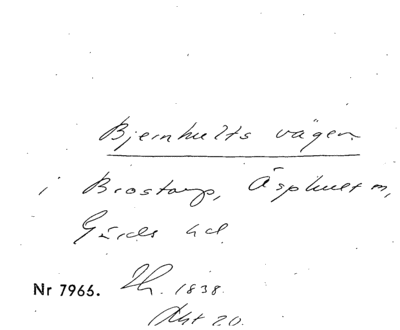 Bjernhults vägen
i Brostorp, Äsphult sn,
Gärds hd
Nr 7965. Th. 1838.
Akt 20.